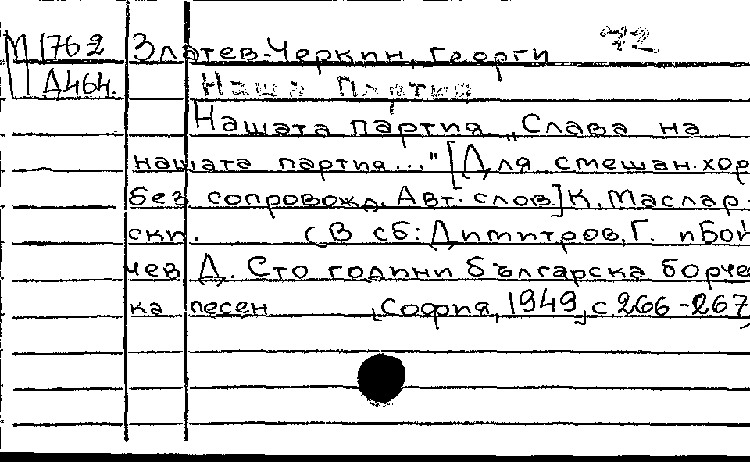 М 1762 Златев-Черкин, Георги 42
Д464. Наша Партия
Нашата партия „Слава на
нашата партия..." [Для смешан. хор
без сопровожд. Авт. слов.] К. Маслар-
ски. (В сб: Димитров, Г. и Бой
чев Д. Сто години българска борче
ка песен София, 1949, с 266-267